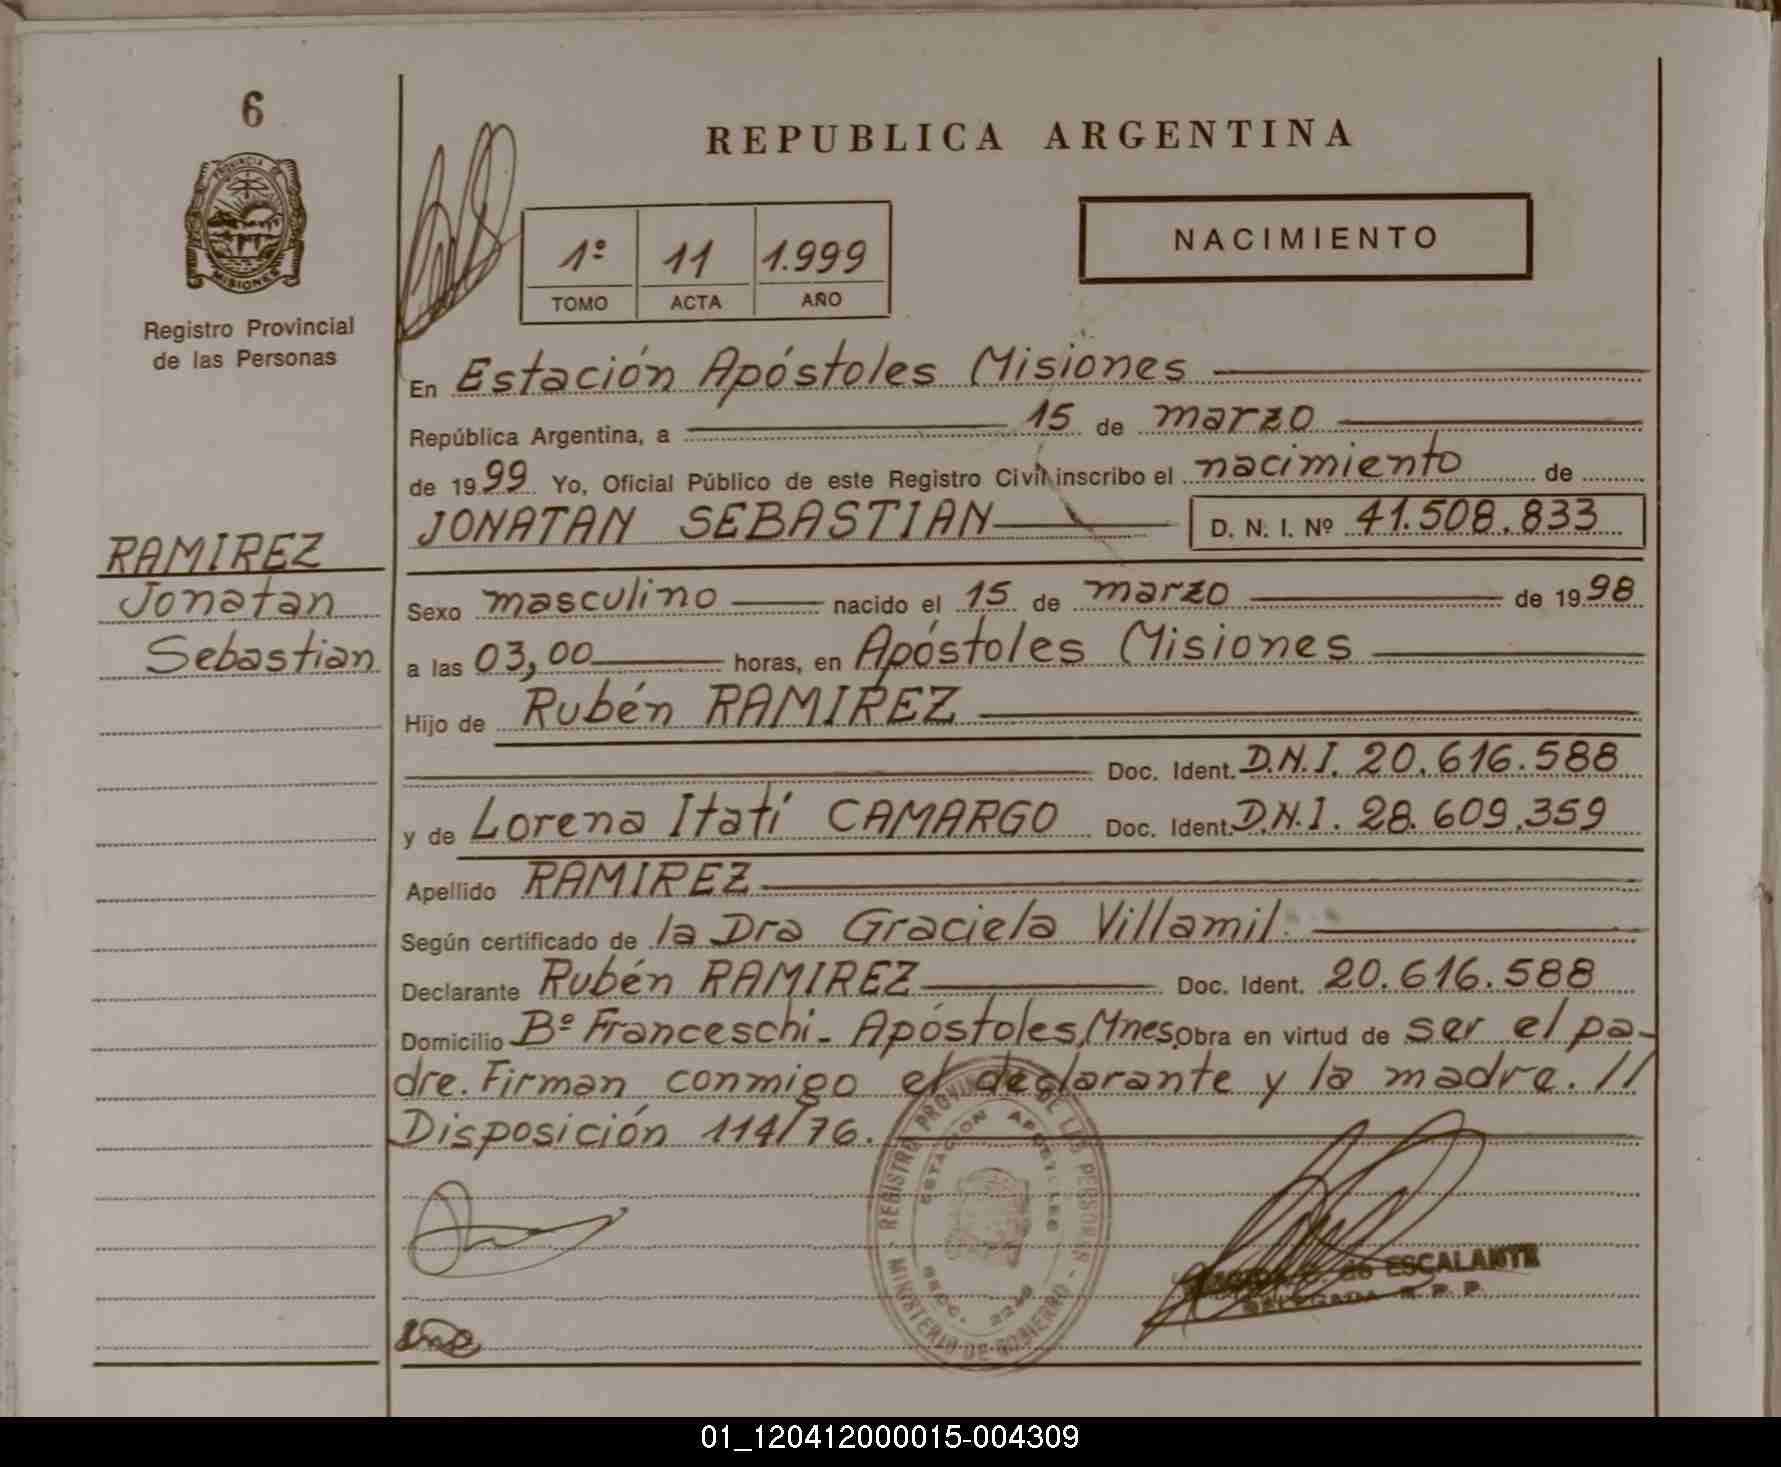 6
PROVINCIA DE
MISIONES
Registro Provincial
de las Personas
REPUBLICA ARGENTINA
1º 11 1.999
TOMO ACTA AÑO
NACIMIENTO
En Estación Apóstoles Misiones
República Argentina, a 15 de marzo
de 1999 Yo, Oficial Público de este Registro Civil inscribo el nacimiento de
JONATAN SEBASTIAN D. N. I. Nº 41.508.833
RAMIREZ
Jonatan
Sebastian
Sexo masculino nacido el 15 de marzo de 1998
a las 03,00 horas, en Apóstoles Misiones
Hijo de Rubén RAMIREZ
Doc. Ident. D.N.I. 20.616.588
y de Lorena Itatí CAMARGO Doc. Ident. D.N.I. 28.609.359
Apellido RAMIREZ
Según certificado de la Dra Graciela Villamil
Declarante Rubén RAMIREZ Doc. Ident. 20.616.588
Domicilio Bº Franceschi - Apóstoles, Mnes. Obra en virtud de ser el pa-
dre. Firman conmigo el declarante y la madre. //
Disposición 114/76.
REGISTRO PROVINCIAL DE LAS PERSONAS
ESTACION APOSTOLES
MINISTERIO DE GOBIERNO
de ESCALANTE
DELEGADA R. P. P.
01_120412000015-004309